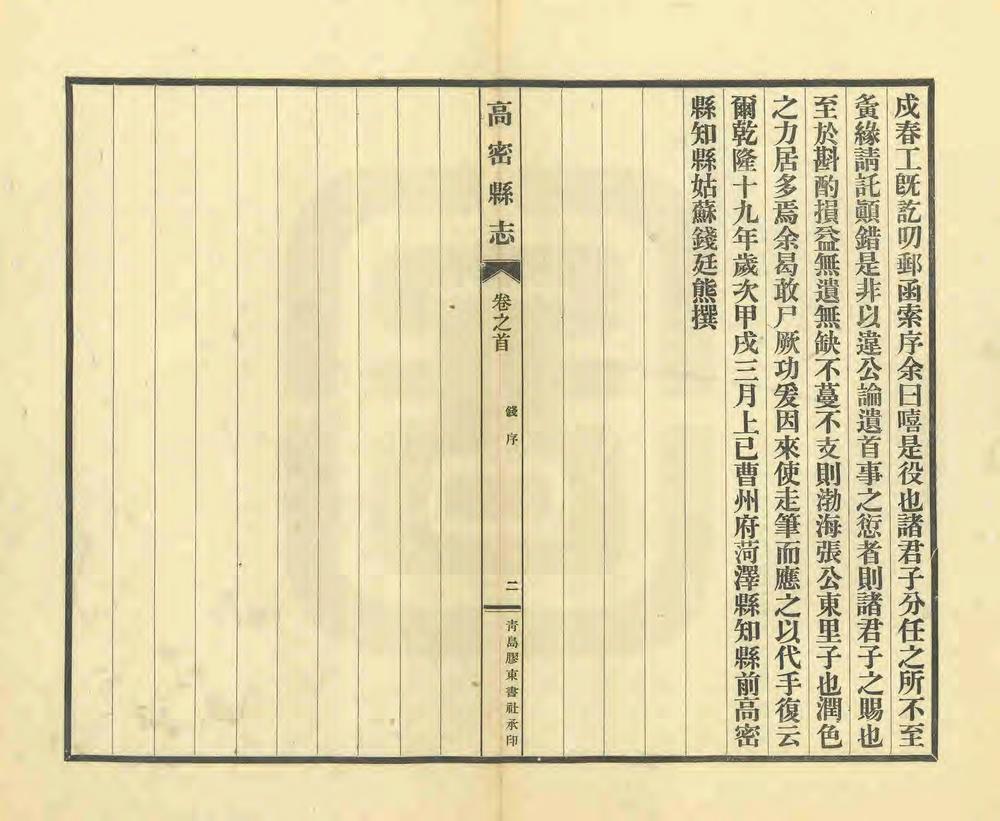 戌春工既訖叨郵函索序余曰嘻是役也諸君子分任之所不至
夤緣請託顚錯是非以違公論遺首事之愆者則諸君子之賜也
至於斟酌損益無遺無缺不蔓不支則渤海張公東里子也潤色
之力居多焉余曷敢尸厥功爰因來使走筆而應之以代手復云
爾乾隆十九年歲次甲戌三月上巳曹州府菏澤縣知縣前高密
縣知縣姑蘇錢廷熊撰
高密縣志
卷之首
錢序
二
靑島膠東書社承印